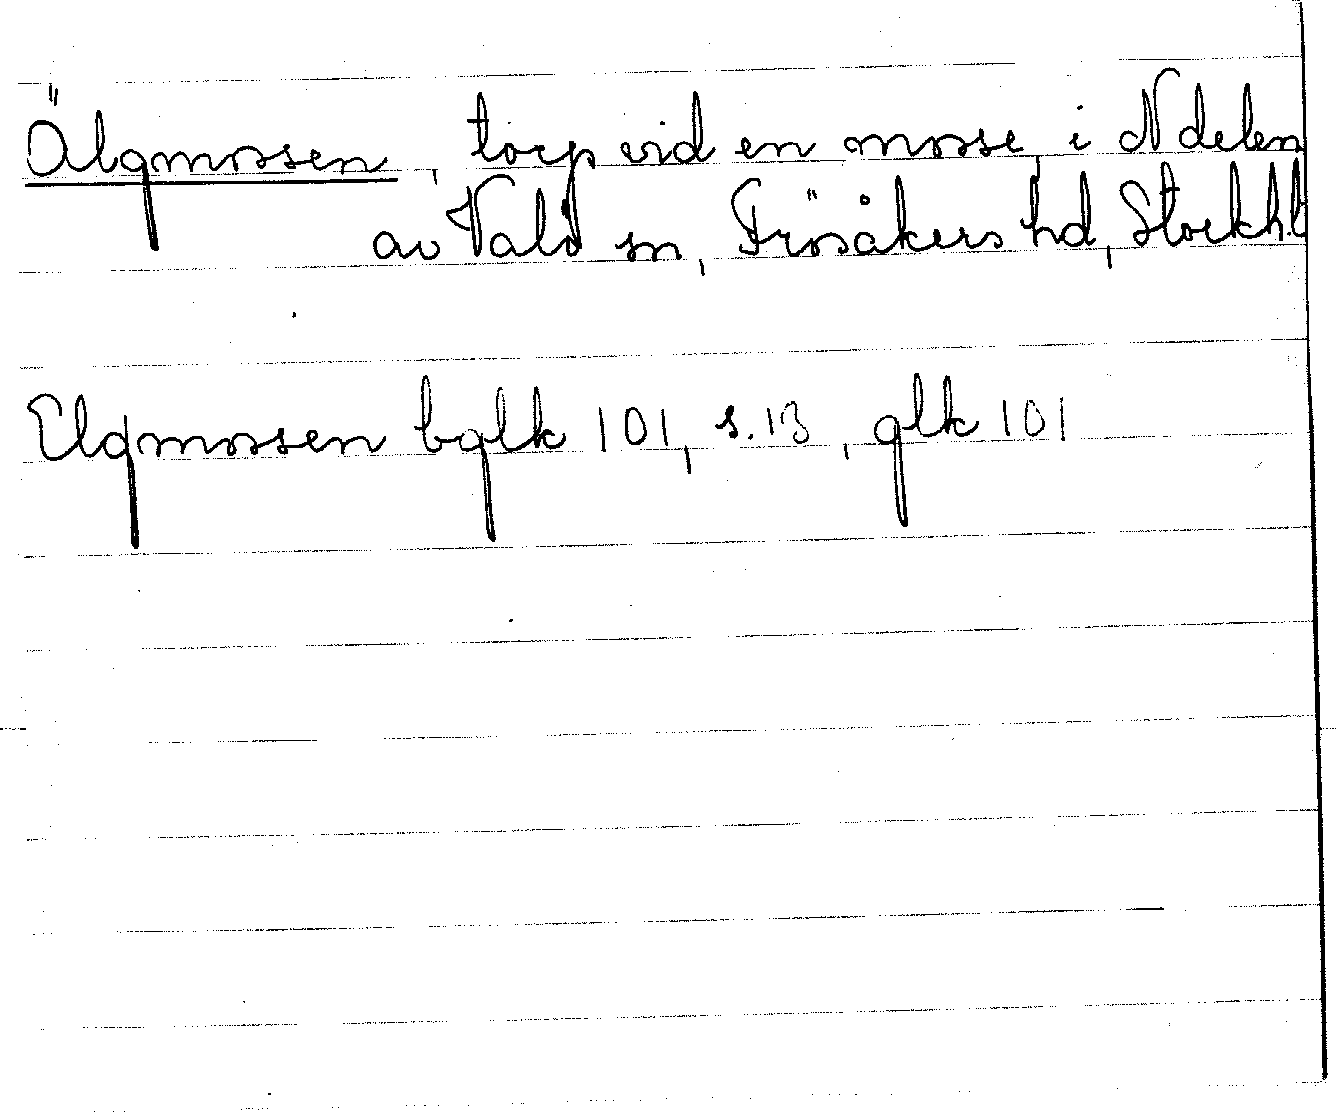 Älgmossen, torp vid en mosse i N delen
av Valö sn, Frösåkers hd, Stockh.l
Elgmossen bglk 101, s. 13, glk 101